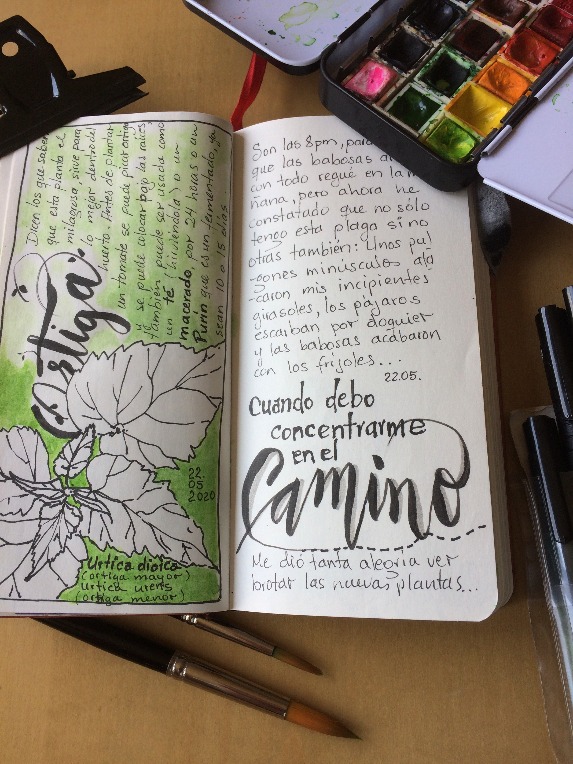 Ortiga.
Dicen los que saben
que esta planta es
milagrosa, sirve para
lo mejor dentro del
huerto. Antes de plantar
un tomate se puede picar ortiga
y se puede colocar bajo las raíces
también puede ser usada como
un té (hirviéndola) o un
macerado, por 24 horas o un
Purín que es un fermentado,
sean 10 o 15 días.
22
05
2020
Urtica dioica
(ortiga mayor)
Urtica urens
(ortiga menor)
Son las 8pm, para
que las babosas
con todo regué en la
ñana, pero ahora he
constatado que no sólo
tengo esta plaga sino
otras también: Unos pul
-gones minusculos ata
-caron mis incipientes
girasoles, los pájaros
escarban por doquier
y las babosas acabaron
con los frijoles...
22.05.
Cuando debo
concentrarme
en el
Camino
Me dió tanta alegria ver
brotar las nuevas plantas...